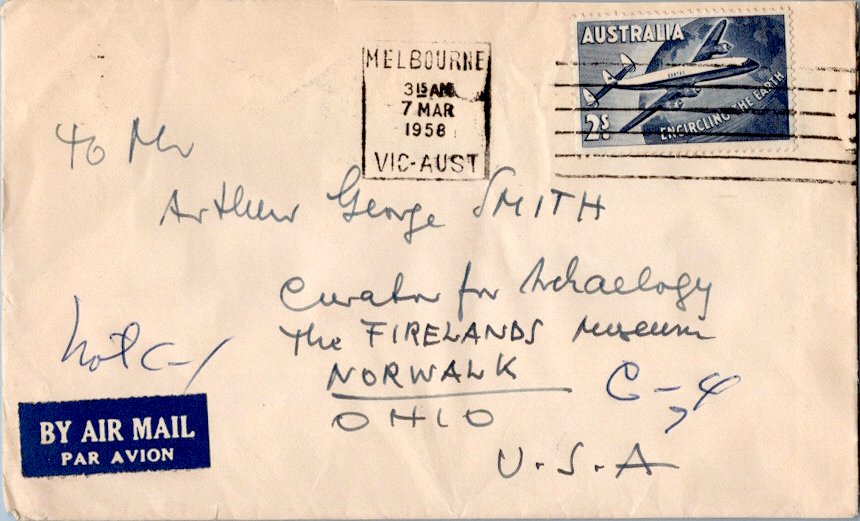 AUSTRALIA
QANTAS
2s
ENCIRCLING THE EARTH
MELBOURNE
3 15 AM
7 MAR
1958
VIC-AUST
To Mr
Arthur George SMITH
Curator for Archaelogy
The FIRELANDS Museum
NORWALK
OHIO
U.S.A
Not C-1
C-4
7
BY AIR MAIL
PAR AVION